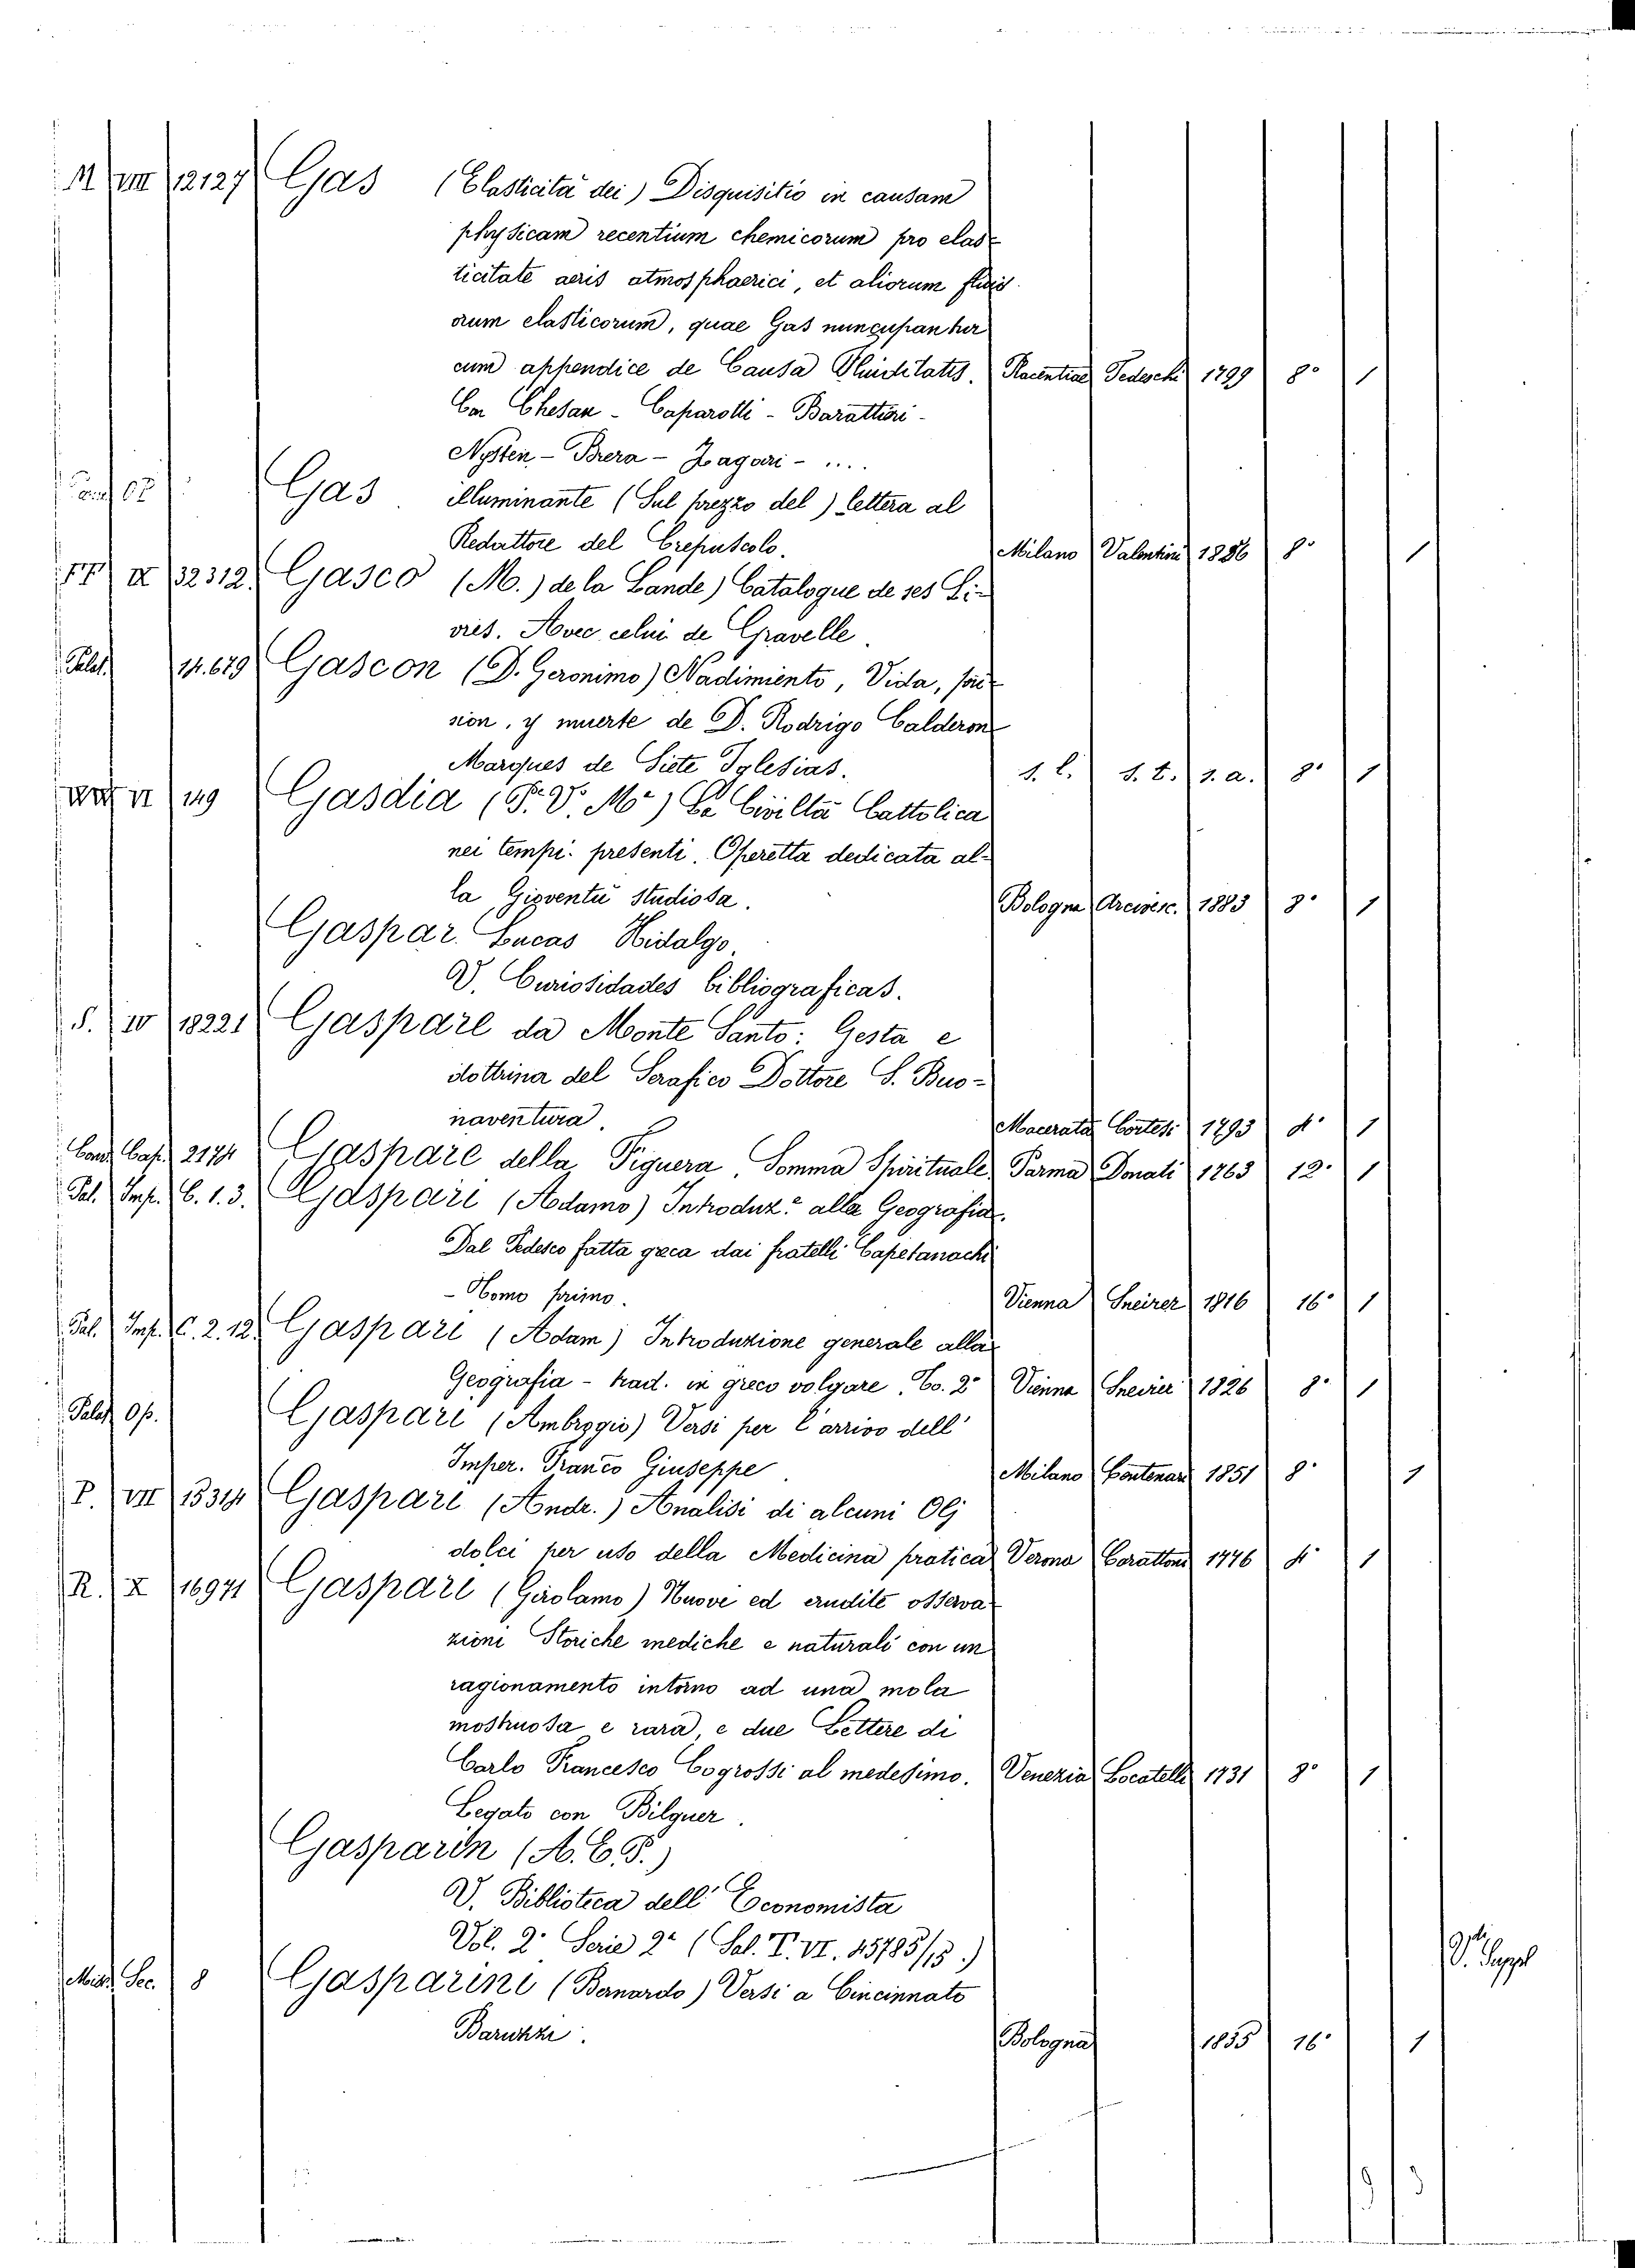 M VIII 12127 Gas (Elasticità dei) Disquisitio in causam
physicam recentium chemicorum pro elas-
ticitate aeris atmosphaerici, et aliorum fluid
orum elasticorum, quae Gas nuncupantur
cum appendice de Causa Fluiditatis. Placentiae Tedeschi 1799 8° 1
Con Chesan - Caparotti - Barattieri -
Nysten - Brera - Zagori - ....
Gas illuminante (Sul prezzo del) lettera al
Redattore del Crepuscolo. Milano Valentini 1856 8° 1
FF IX 32312. Gasco (M.) de la Lande) Catalogue de ses Li-
vres. Avec celui de Gravelle.
Palat. 14.679 Gascon (D. Geronimo) Nadimiento, Vida, pri-
sion, y muerte de D. Rodrigo Calderon
Marques de Siete Iglesias. s. l. s. t. s. a. 8° 1
VI 149 Gasdia (P. V. M.) La Civiltà Cattolica
nei tempi presenti. Operetta dedicata al-
la Gioventù studiosa. Bologna Arcivesc. 1883 8° 1
Gaspar Lucas Hidalgo
V. Curiosidades bibliograficas.
S. IV 18221 Gaspare da Monte Santo: Gesta e
dottrina del Serafico Dottore S. Buo-
naventura. Macerata Cortesi 1793 4° 1
Cand. Cap. 2174 Gaspare della Figuera. Somma Spirituale Parma Donati 1763 12° 1
Pal. Imp. C. 1. 3. Gaspari (Adamo) Introduz.e alla Geografia.
Dal Tedesco fatta greca dai fratelli Capetanachi
- Tomo primo. Vienna Sneirer 1816 16° 1
Pal. Imp. C. 2. 12. Gaspari (Adam) Introduzione generale alla
Geografia - trad. in greco volgare. To. 2° Vienna Sneirer 1826 8° 1
Palat. Op. Gaspari (Ambrogio) Versi per l'arrivo dell'
Imper. Franco Giuseppe. Milano Centenari 1851 8° 1
P. VII 15314 Gaspari (Andr.) Analisi di alcuni Olj
dolci per uso della Medicina pratica Verona Carattoni 1776 4° 1
R. X 16971 Gaspari (Girolamo) Nuove ed erudite osserva-
zioni Storiche mediche e naturali con un
ragionamento intorno ad una mola
mostruosa e rara, e due Lettere di
Carlo Francesco Cogrossi al medesimo. Venezia Locatelli 1731 8° 1
Legato con Bilguer.
Gasparin (A. E. P.)
V. Biblioteca dell'Economista
Vol. 2° Serie 2a (Sal. T. VI. 15785/15.)
Misc. Sec. 8 Gasparini (Bernardo) Versi a Cincinnato
Baruzzi. Bologna 1835 16° 1